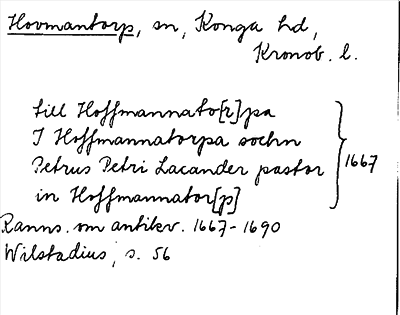 Hovmantorp, sn, Konga hd,
Kronob. l.
till Hoffmannato[r]pa
I Hoffmannatorpa sochn
Petrus Petri Lacander pastor
in Hoffmannator[p]
1667
Ranns. om antikv. 1667-1690
Wilstadius, s. 56